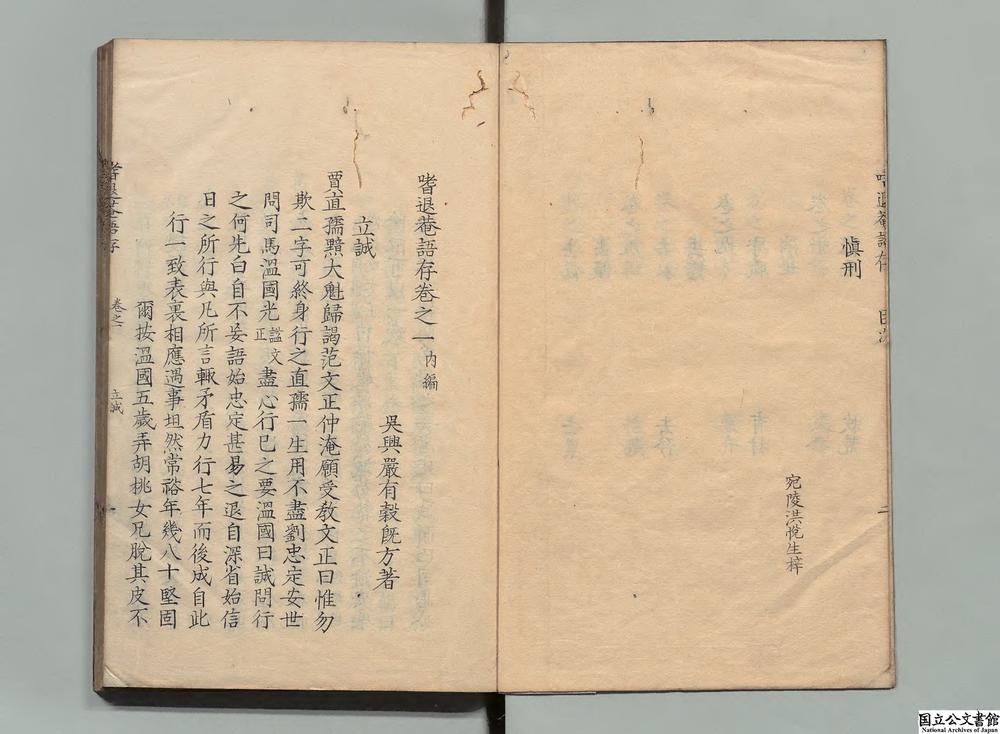 慎刑
宛陵洪悅生梓
嗜退菴語存卷之一 內編
吳興嚴有穀旣方著
立誠
賈直孺黯大魁歸謁范文正仲淹願受敎文正曰惟勿
欺二字可終身行之直孺一生用不盡劉忠定安世
問司馬溫國光諡文正盡心行已之要溫國曰誠問行
之何先白自不妄語始忠定甚易之退自深省始信
日之所行與凡所言輒矛盾力行七年而後成自此
行一致表裏相應遇事坦然常裕年幾八十堅固
爾按溫國五歲弄胡桃女兄脫其皮不
卷之一
立誠
国立公文書館
National Archives of Japan